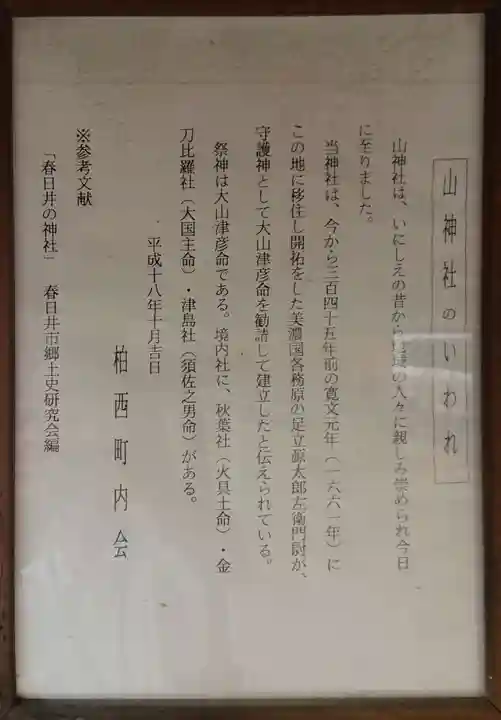 山神社のいわれ
山神社は、いにしえの昔から地域の人々に親しみ崇められ今日
に至りました。
当神社は、今から三百四十五年前の寛文元年(一六六一年)に
この地に移住し開拓をした美濃国各務原の足立源太郎左衛門尉が、
守護神として大山津彦命を勧請して建立したと伝えられている。
祭神は大山津彦命である。境内社に、秋葉社(火具土命)・金
刀比羅社(大国主命)・津島社(須佐之男命)がある。
平成十八年十月吉日
柏西町内会
※参考文献
「春日井の神社」 春日井市郷土史研究会編